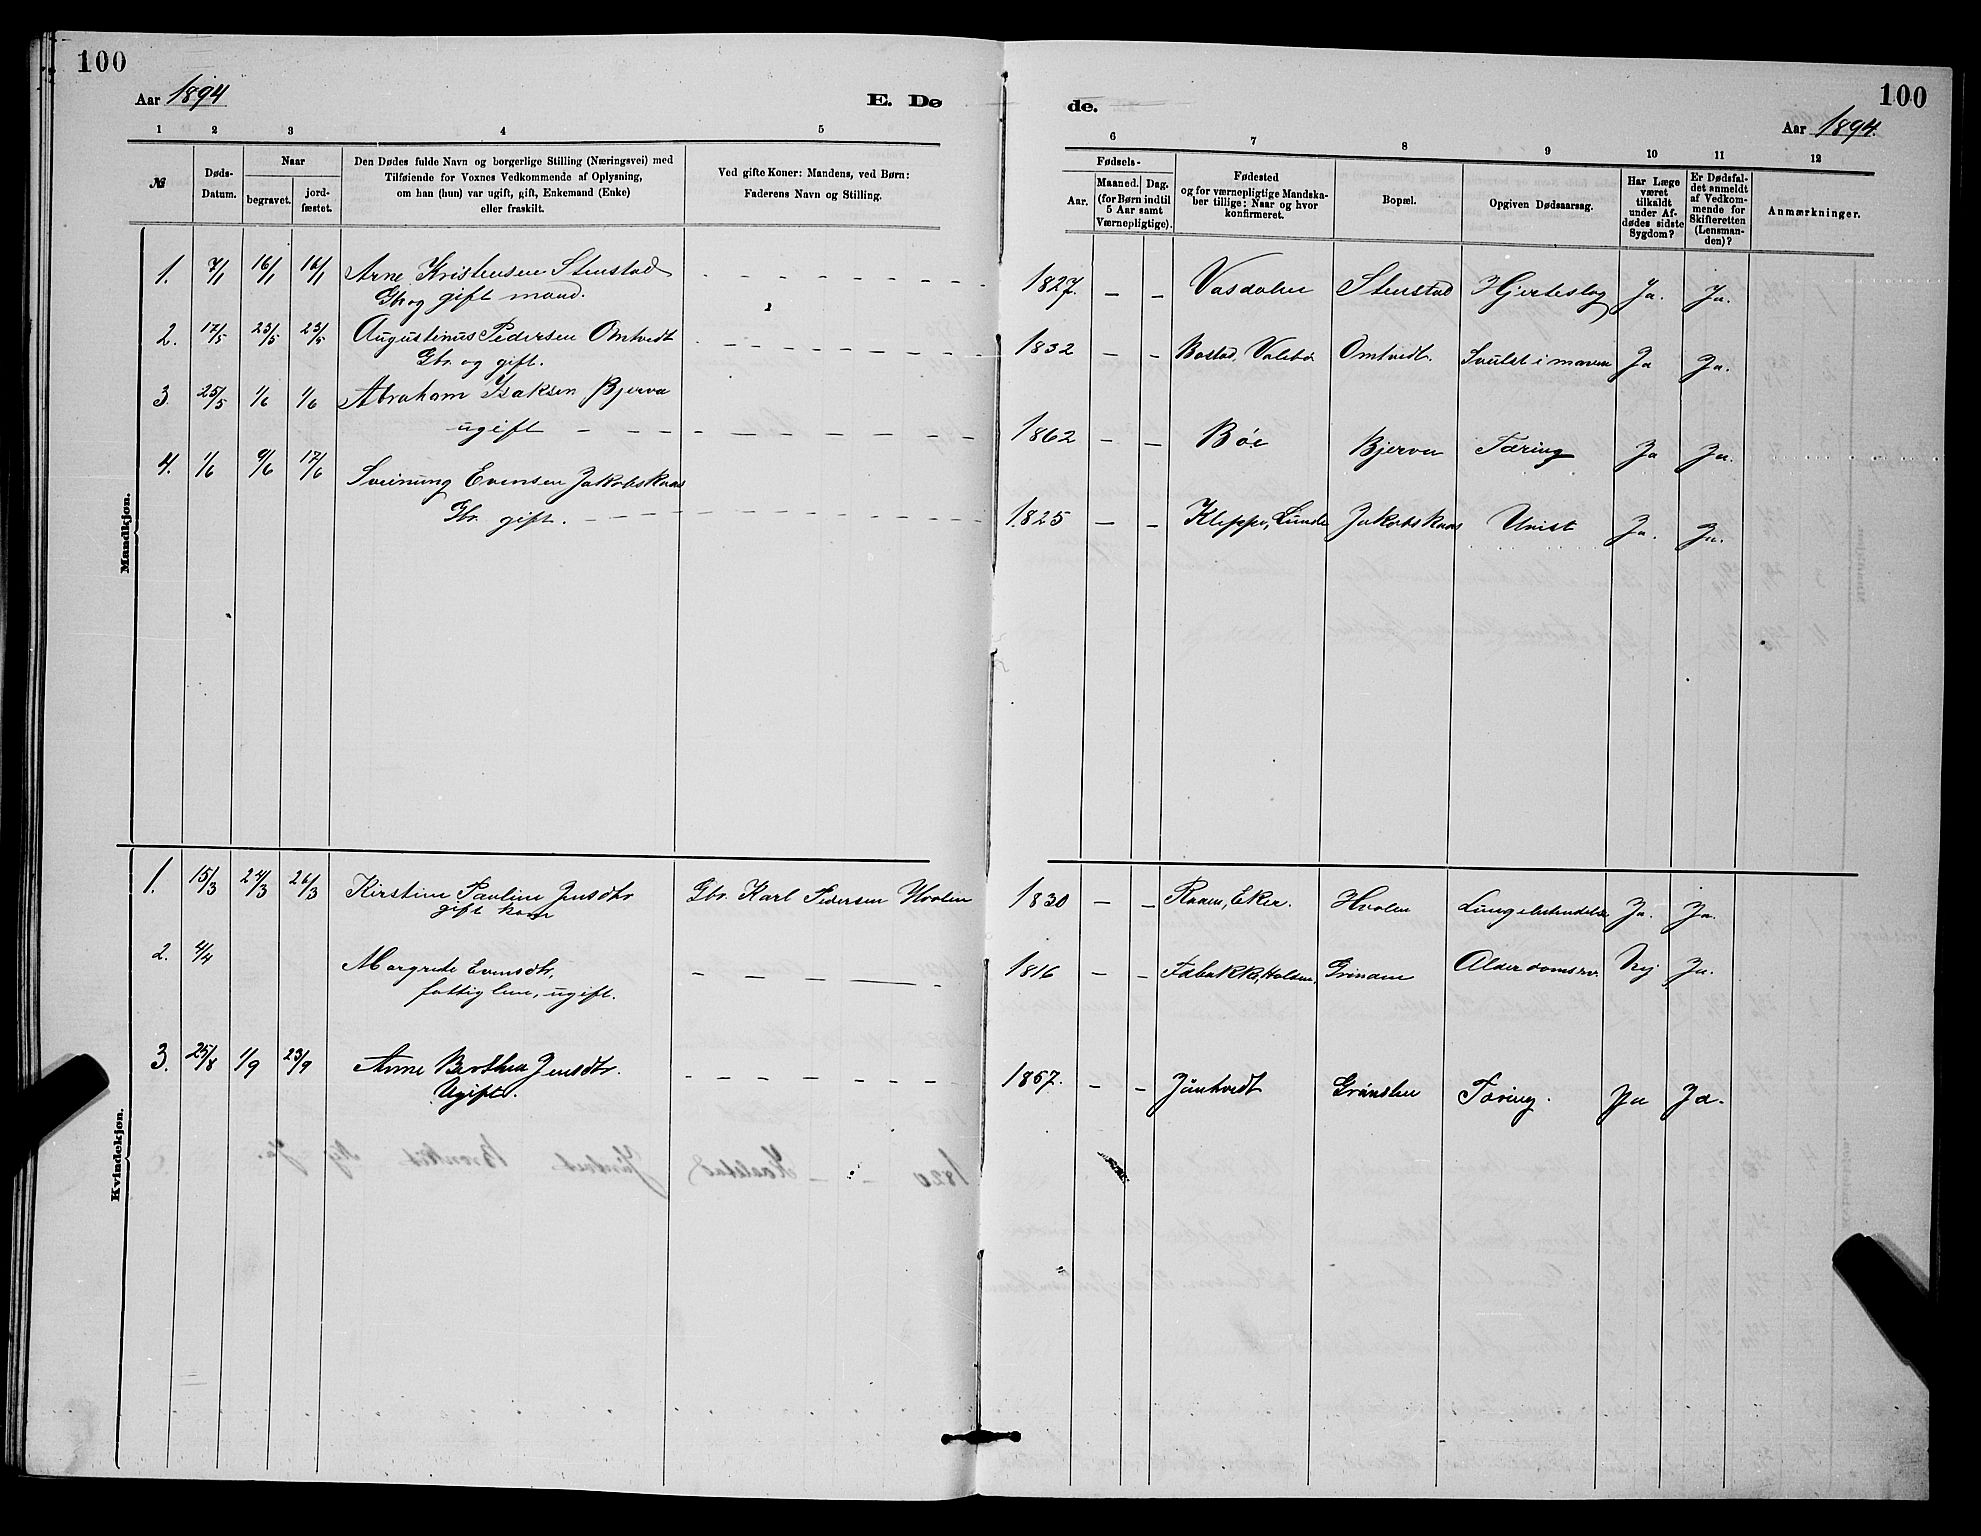 100
Aar 1894
E. Dø
de.
100
Aar 1894.
1 2 3 4 5
6 7 8 9 10 11 12
№
Døds-
Datum.
Naar
begravet.
jord-
fæstet.
Den Dødes fulde Navn og borgerlige Stilling (Næringsvei) med
Tilføiende for Voxnes Vedkommende af Oplysning,
om han (hun) var ugift, gift, Enkemand (Enke)
eller fraskilt.
Ved gifte Koner: Mandens, ved Børn:
Faderens Navn og Stilling.
Fødsels-
Aar.
Maaned. Dag.
(for Børn indtil
5 Aar samt
Værnepligtige).
Fødested
og for værnepligtige Mandska-
ber tillige: Naar og hvor
konfirmeret.
Bopæl.
Opgiven Dødsaarsag.
Har Læge
været
tilkaldt
under Af-
dødes sidste
Sygdom?
Er Dødsfal-
det anmeldt
af Vedkom-
mende for
Skifteretten
(Lensman-
den)?
Anmærkninger.
Mandkjøn.
1. 7/1 16/1 16/1 Arne Kristensen Stenstad - - - - - - 1827. - - Vasdalen Stenstad Hjerteslag Ja. Ja.
Gbr og gift mand.
2. 17/5 23/5 23/5 Augustinus Pedersen Omtvedt - - - - - - 1832 - - Bostad, Valebø Omtvedt. Svulst i maven Ja Ja.
Gbr. og gift.
3. 25/5 1/6 1/6 Abraham Isaksen Bjerva
ugift - - - - - - 1862 - - Bøe Bjerva Tæring Ja Ja.
4. 1/6 9/6 17/6 Sveinung Evensen Jakobskaas
Gbr. gift. - - - - - - 1825 - - Kleppe, Lunde Jakobskaas Unist Ja. Ja.
Kvindekjøn.
1. 15/3 24/3 26/3 Kirstine Pauline Jensdtr Gbr. Karl Pedersen Hvalen 1830 - - Raaen, Eker. Hvalen Lungebetændelse Ja. Ja.
gift kone
2. 4/4 Margrete Evensdtr, - - - - - 1816 - - Fæbakke, Holden, Grinaen Alderdomssv. Nej Ja.
fattiglem, ugift.
3. 25/8 1/9 23/9 Anne Berthea Jensdtr. - - - - - - 1867. - - Jøntvedt Grønslen Tæring. Ja Ja.
Ugift.